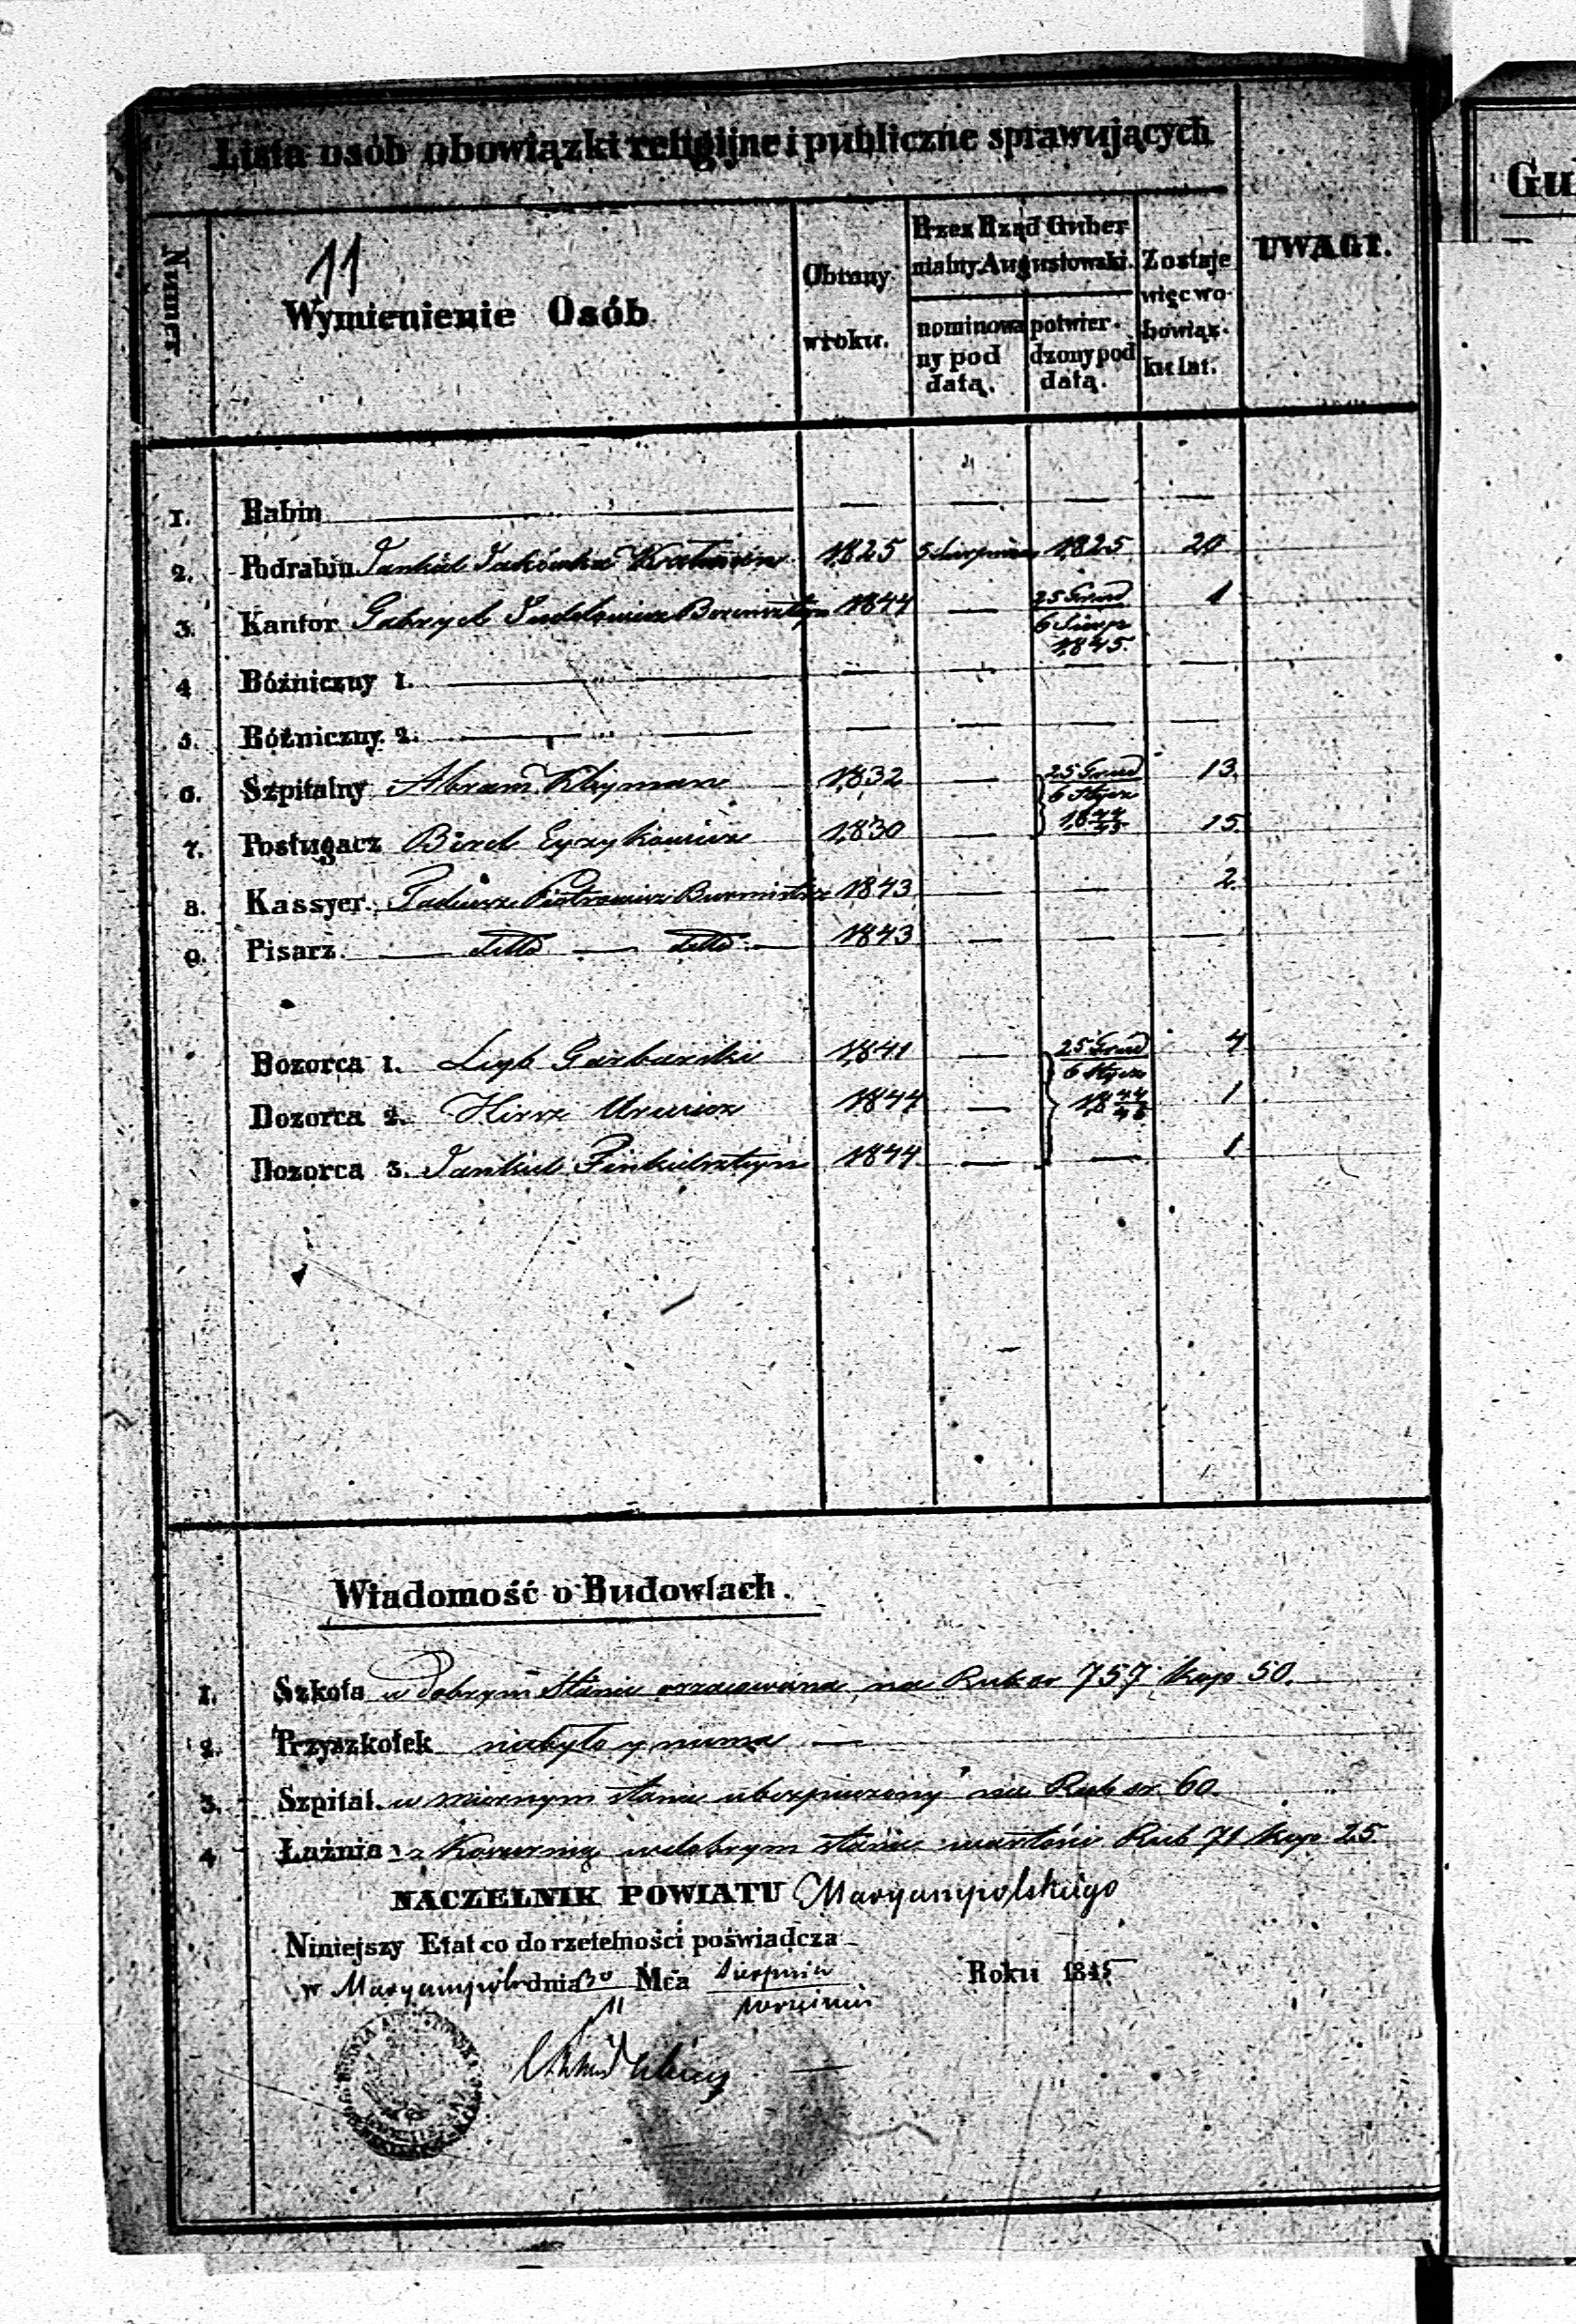 Lista osób obowiązki religijne i publiczne sprawujących
Numer.
11
Wymienienie Osób
Obrany w roku.
Przez Rząd Gubernialny Augustowski.
nominowany pod datą.
potwierdzony pod datą.
Zostaje więc w obowiązku lat.
UWAGI.
Gu
1. Rabin — — — — —
2. Podrabin Jankiel 1825 5 Sierpnia 1825 20
3. Kantor Gabryel 1844 — 25 Grud 6 1845. 1
4 Bóźniczny 1. — — — — —
5. Bóźniczny 2. — — — — —
6. Szpitalny Abram Klyman 1832 — 25 Grud 6 Stycz 18 44/45 13.
7. Posługacz 1830 — 15.
8. Kassyer. Tadeusz Piotrowicz Burmistrz 1843 — — 2.
9. Pisarz. — detto — detto — 1843 — — —
Dozorca 1. Leyb Garbarski 1841 — 25 Grud 6 Stycz 18 44/45 4
Dozorca 2. Hirsz 1844 — 1
Dozorca 3. Jankiel Finkielsztyn 1844 — — 1
Wiadomość o Budowlach.
1. Szkoła w dobrym stanie na Rub sr 757 kop 50.
2. Przyszkołek niebyło y niema —
3. Szpital. w miernym stanie ubezpieczony na Rub sr. 60.
4 Łaźnia w dobrym stanie wartości Rub 71 kop 25.
NACZELNIK POWIATU Maryampolskiego
Niniejszy Etat co do rzetelności poświadcza
w Maryampolu dnia 30/11 Mca Sierpnia/Września Roku 1845